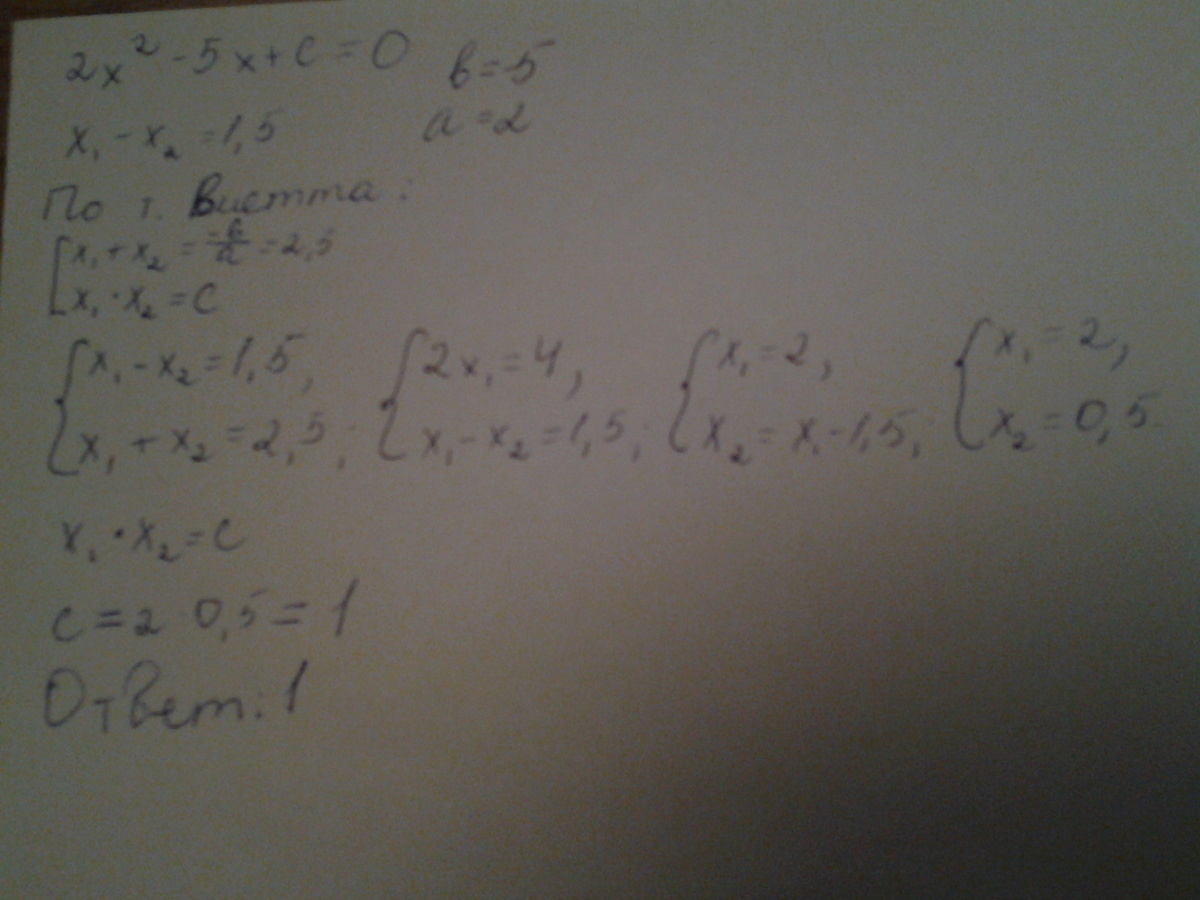 2x² - 5x + c = 0 в = -5
x₁ - x₂ = 1,5 a = 2
По т. Виетта:
[x₁ + x₂ = -в/a = 2,5
[x₁ · x₂ = c
{x₁ - x₂ = 1,5, {2x₁ = 4, {x₁ = 2, {x₁ = 2,
{x₁ + x₂ = 2,5; {x₁ - x₂ = 1,5; {x₂ = x₁ - 1,5; {x₂ = 0,5.
x₁ · x₂ = c
c = 2 0,5 = 1
Ответ: 1